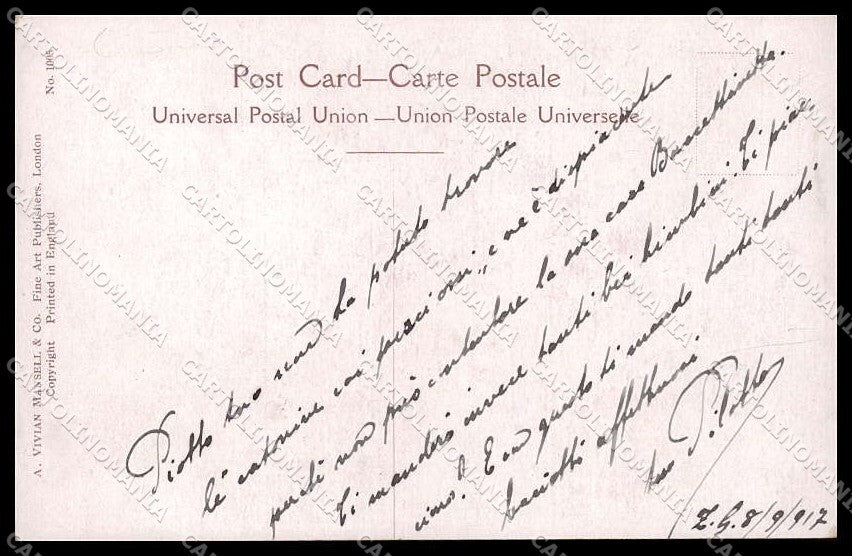 Post Card—Carte Postale
Universal Postal Union—Union Postale Universelle
No. 1005
A. Vivian Mansell & Co. Fine Art Publishers, London
Copyright Printed in England
Piotto tuo non ha potuto trovare
le cartoline coi, e ne è dispiacente
perchè non può contentare la sua cara
Ti manderò invece tanti bei bimbini. Ti piac
ciono? E con questo ti mando tanti tanti
baciotti affettuosi.
tuo Piotto
Z.G. 8/9/917
CARTOLINOMANIA